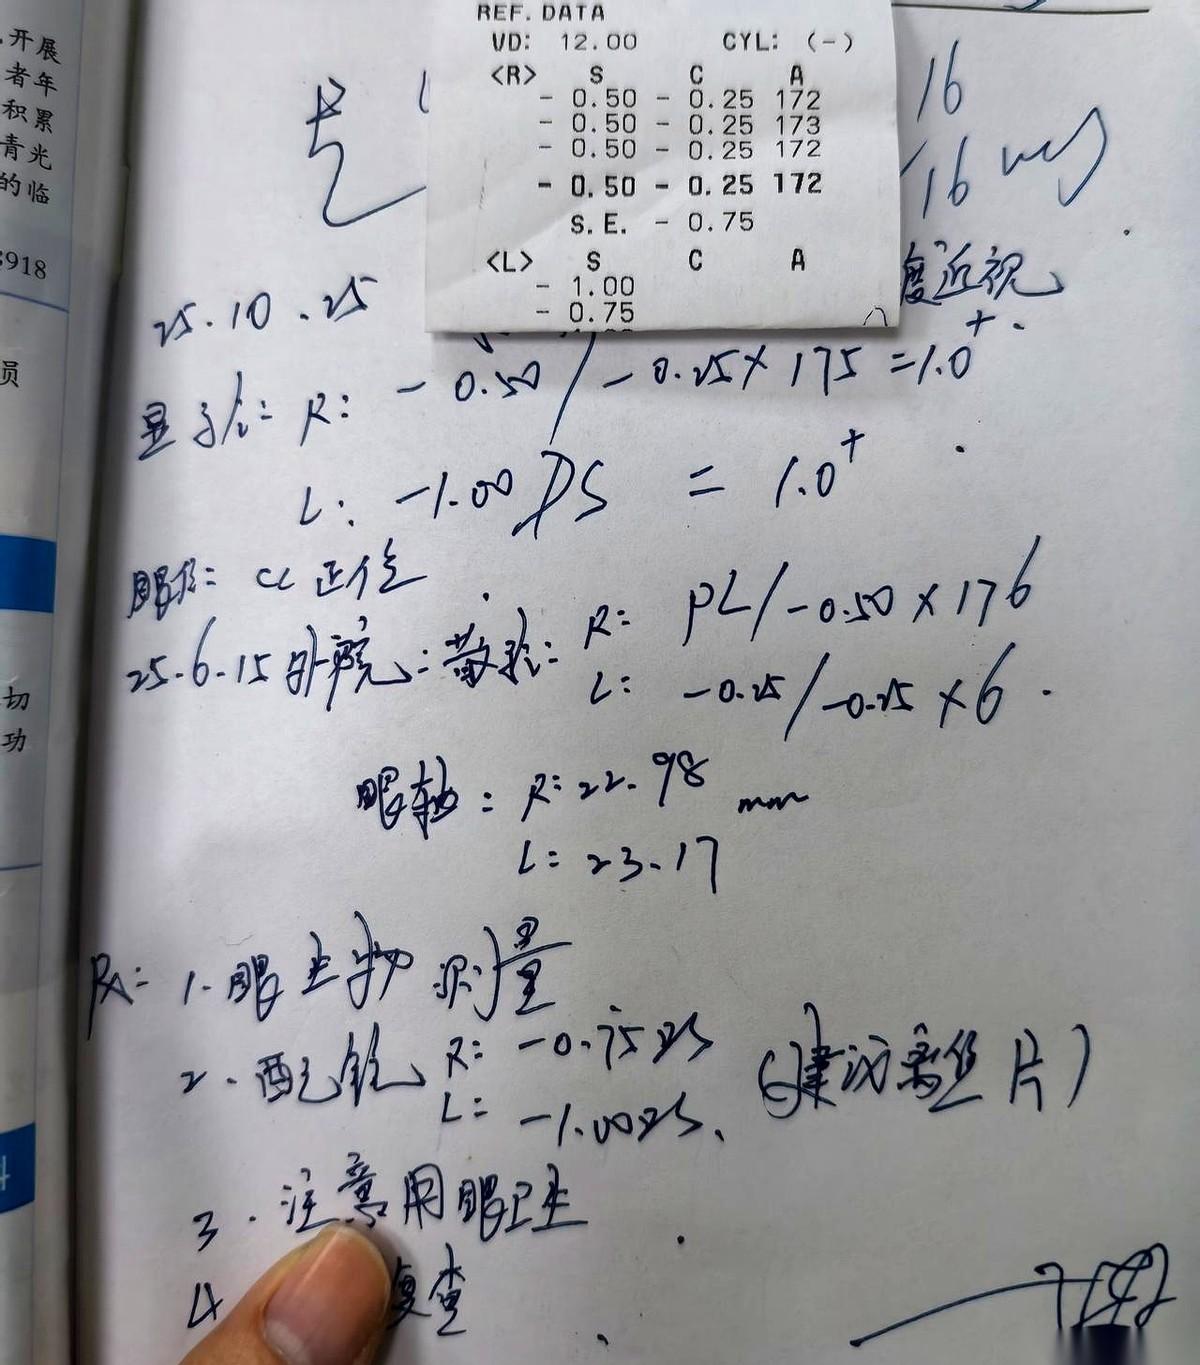 开展
者年
积累
青光
的临
918
员
切
功
REF. DATA
VD: 12.00 CYL: (-)
<R> S C A
- 0.50 - 0.25 172
- 0.50 - 0.25 173
- 0.50 - 0.25 172
- 0.50 - 0.25 172
S.E. - 0.75
<L> S C A
- 1.00
- 0.75
16
16
度近视
25.10.25
显验: R: -0.50/-0.25×175=1.0⁺.
L: -1.00DS = 1.0⁺
眼位: cc 正位
25.6.15外院: 散验: R: PL/-0.50×176
L: -0.25/-0.25×6.
眼轴: R: 22.98 mm
L: 23.17
Rx: 1.眼生物测量
2.配镜 R: -0.75DS (建议离焦片)
L: -1.00DS、
3.注意用眼卫生
4 复查